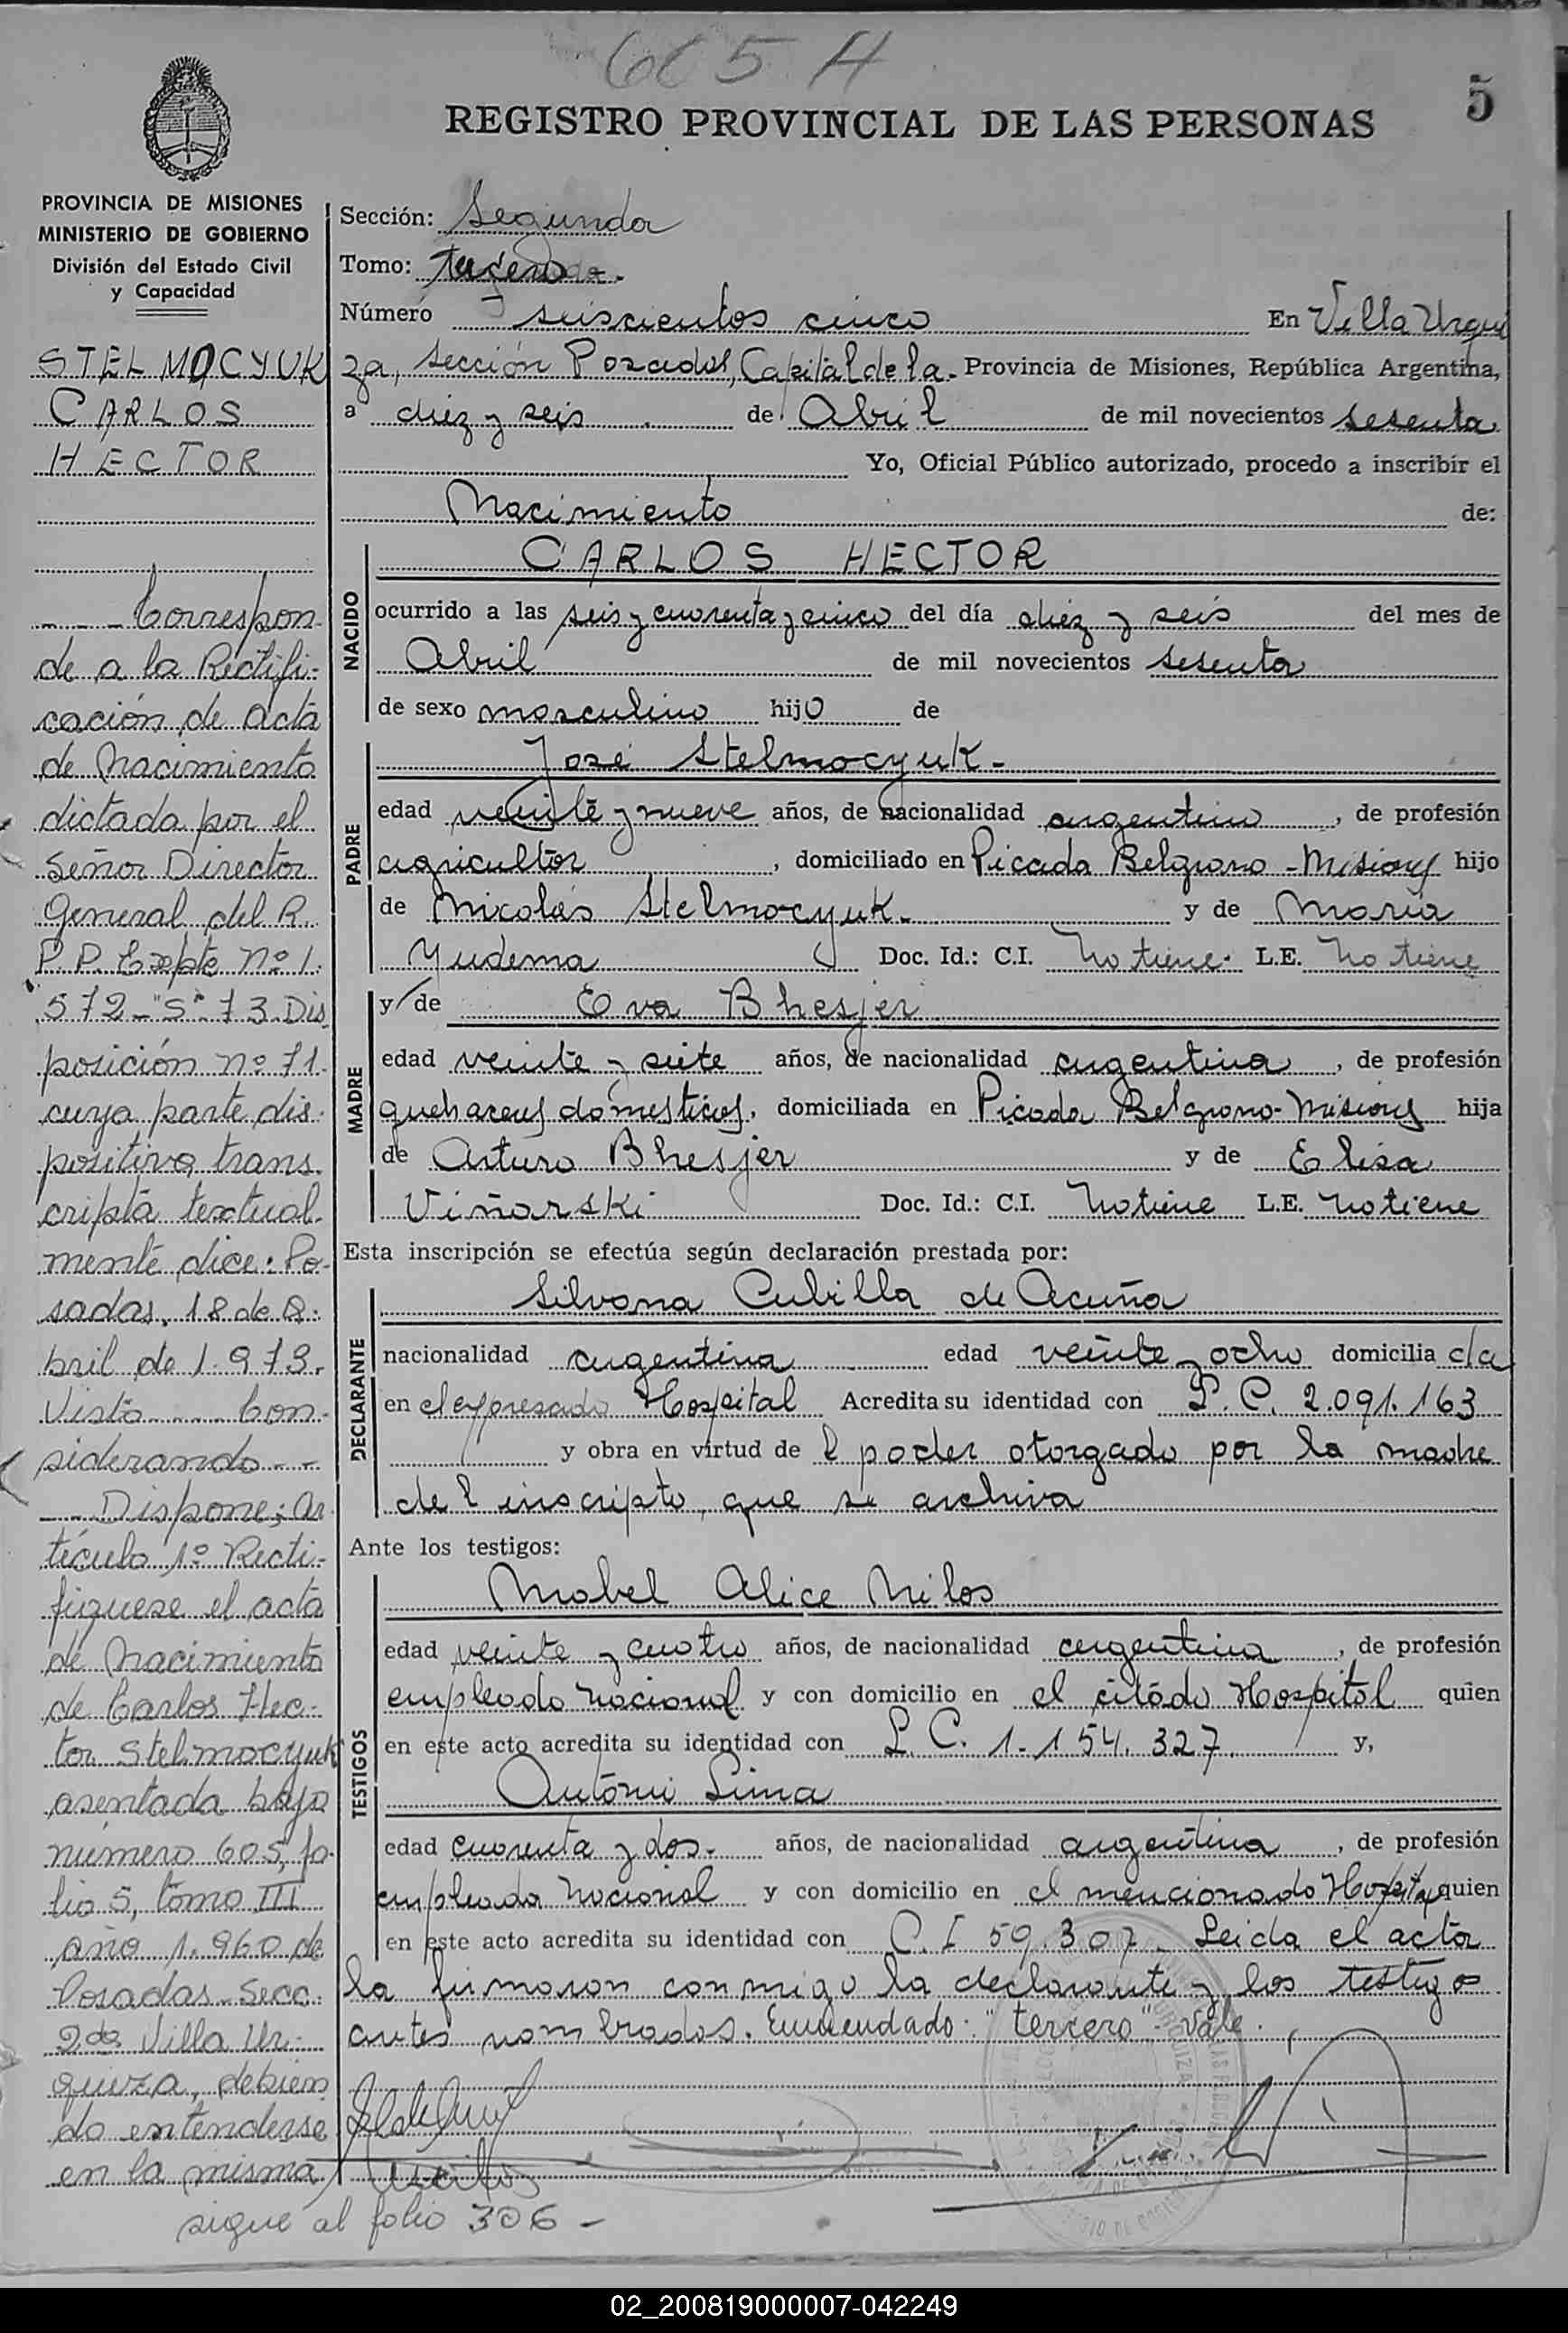 605 A
5
REGISTRO PROVINCIAL DE LAS PERSONAS
PROVINCIA DE MISIONES
MINISTERIO DE GOBIERNO
División del Estado Civil
y Capacidad
STELMOCYUK
CARLOS
HECTOR
- - - Correspon-
de a la Rectifi-
cación de acta
de Nacimiento
dictada por el
Señor Director
General del R.
P. P. Expte Nº 1.
572-"S"-73 Dis
posición nº 71
cuya parte dis-
positiva trans-
cripta textual-
mente dice: Po-
sadas, 18 de A-
bril de 1.973.
Visto .... Con-
siderando - -
- - Dispone: Ar
tículo 1º Recti-
fíquese el acta
de Nacimiento
de Carlos Hec-
tor Stelmocyuk
asentada bajo
número 605, fo-
lio 5, tomo III
año 1.960 de
Posadas - Secc.
2da Villa Ur-
quiza, debien
do entenderse
en la misma
sigue al folio 306 -
Sección: Segunda
Tomo: tercero -.
Número seiscientos cinco En Villa Urqui
za, Sección Posadas, Capital de la - Provincia de Misiones, República Argentina,
a diez y seis de Abril de mil novecientos sesenta
Yo, Oficial Público autorizado, procedo a inscribir el
Nacimiento de:
NACIDO
CARLOS HECTOR
ocurrido a las seis y cuarenta y cinco del día diez y seis del mes de
Abril de mil novecientos sesenta
de sexo masculino hijo de
PADRE
José Stelmocyuk -
edad veinte y nueve años, de nacionalidad argentino, de profesión
agricultor, domiciliado en Picada Belgrano - Misiones hijo
de Nicolás Stelmocyuk - y de María
Yudema Doc. Id.: C.I. No tiene - L.E. No tiene
MADRE
y de Eva Bhesjer
edad veinte y siete años, de nacionalidad argentina, de profesión
quehaceres domésticos, domiciliada en Picada Belgrano - Misiones hija
de Arturo Bhesjer y de Elisa
Viñarski Doc. Id.: C.I. No tiene L.E. No tiene
Esta inscripción se efectúa según declaración prestada por:
DECLARANTE
Silvana Cubilla de Acuña
nacionalidad argentina edad veinte y ocho domicilia da
en el expresado Hospital Acredita su identidad con L. C. 2.091.163
y obra en virtud de l poder otorgado por la madre
del inscripto, que se archiva
Ante los testigos:
TESTIGOS
Mabel Alice Milos
edad veinte y cuatro años, de nacionalidad argentina, de profesión
empleada nacional y con domicilio en el citado Hospital quien
en este acto acredita su identidad con L. C. 1.154.327. y,
Lima
edad cuarenta y dos - años, de nacionalidad argentina, de profesión
empleada nacional y con domicilio en el mencionado Hospital quien
en este acto acredita su identidad con C. I 59.307. Leida el acta
la firmaron conmigo la declarante y los testigos
antes nombrados. Enmendado: "tercero" Vale.
02_200819000007-042249